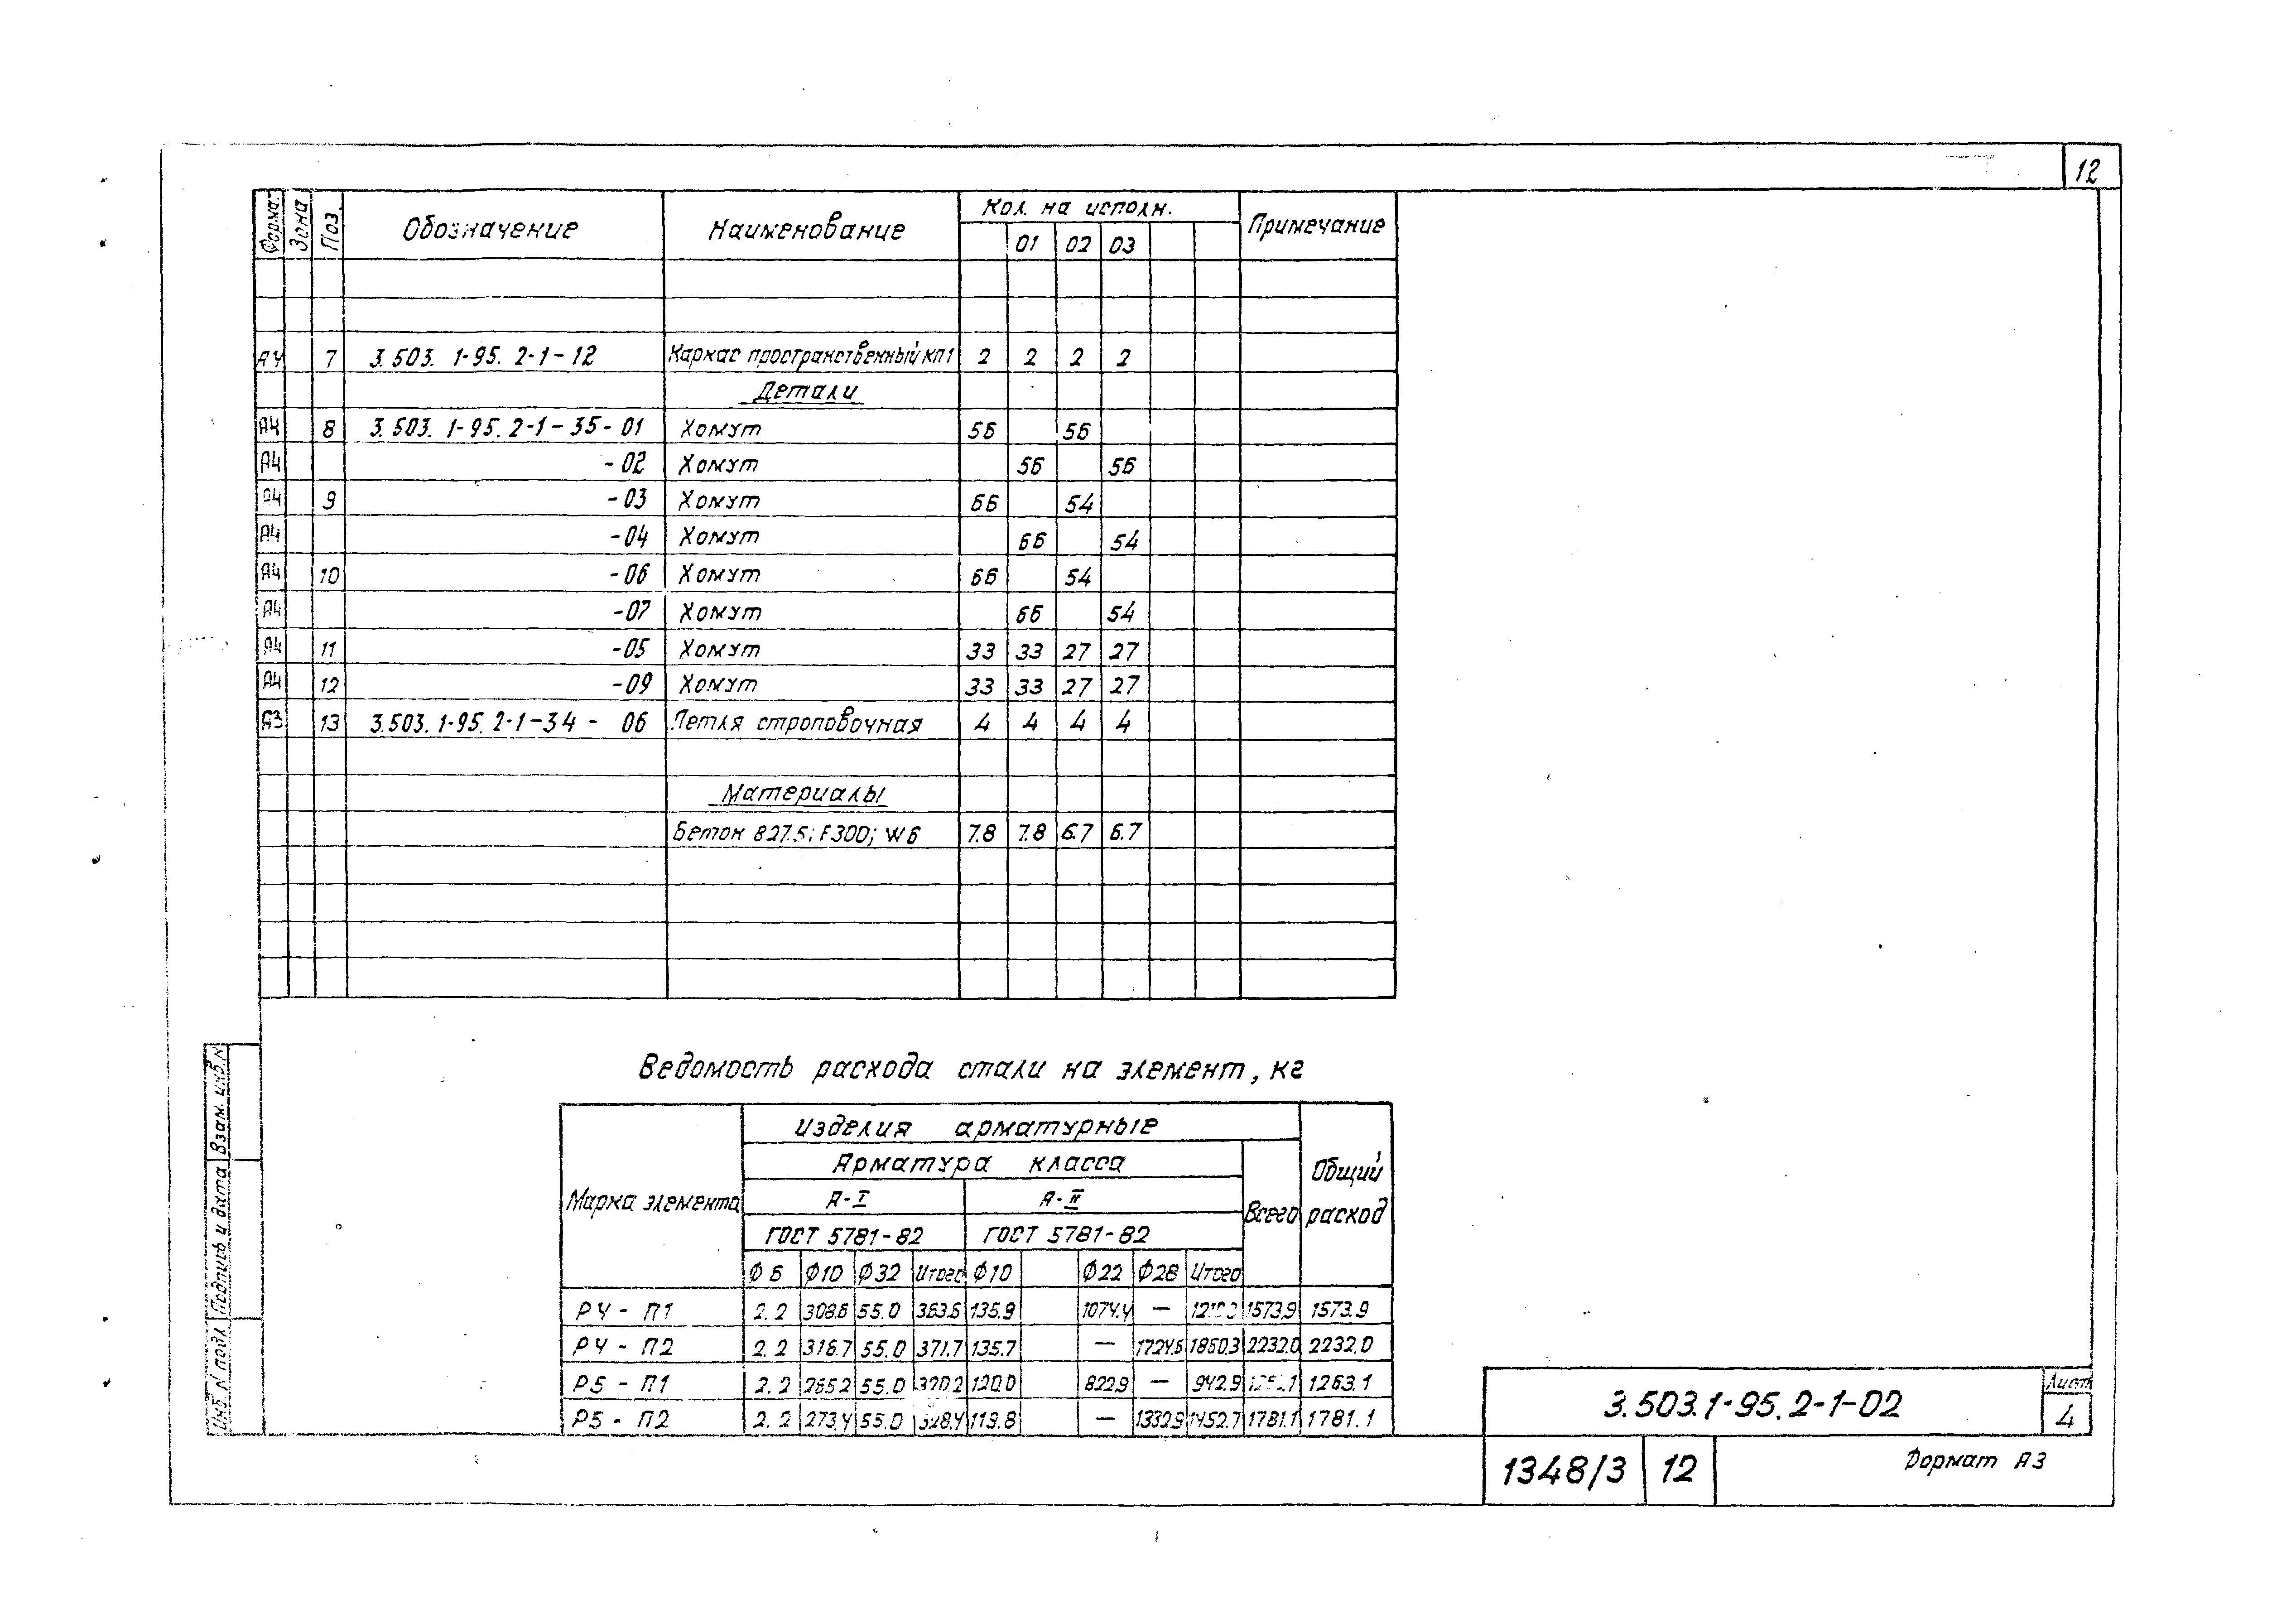 12
Форма. Зона Поз. Обозначение Наименование Кол. на исполн. Примечание
01 02 03
А4 7 3.503. 1-95. 2-1-12 Каркас пространственный КП1 2 2 2 2
Детали
А4 8 3.503. 1-95. 2-1-35-01 Хомут 56 56
А4 -02 Хомут 56 56
А4 9 -03 Хомут 66 54
А4 -04 Хомут 66 54
А4 10 -06 Хомут 66 54
А4 -07 Хомут 66 54
А4 11 -05 Хомут 33 33 27 27
А4 12 -09 Хомут 33 33 27 27
А3 13 3.503. 1-95. 2-1-34- 06 Петля строповочная 4 4 4 4
Материалы
Бетон В27.5; F300; W6 7.8 7.8 6.7 6.7
Ведомость расхода стали на элемент, кг
Марка элемента Изделия арматурные Общий расход
Арматура класса Всего
А-I А-II
ГОСТ 5781-82 ГОСТ 5781-82
Ф6 Ф10 Ф32 Итого Ф10 Ф22 Ф28 Итого
Р4 - П1 2.2 308.6 55.0 363.6 135.9 1074.4 — 1573.9 1573.9
Р4 - П2 2.2 316.7 55.0 371.7 135.7 — 1724.6 1860.3 2232.0 2232.0
Р5 - П1 2.2 265.2 55.0 320.2 120.0 822.9 — 942.9 1263.1
Р5 - П2 2.2 273.4 55.0 328.4 119.8 — 1332.9 1452.7 1781.1 1781.1
Инв. N подл Подпись и дата Взам. инв. N
3.503.1-95.2-1-02
Лист
4
1348/3 12
Формат А3